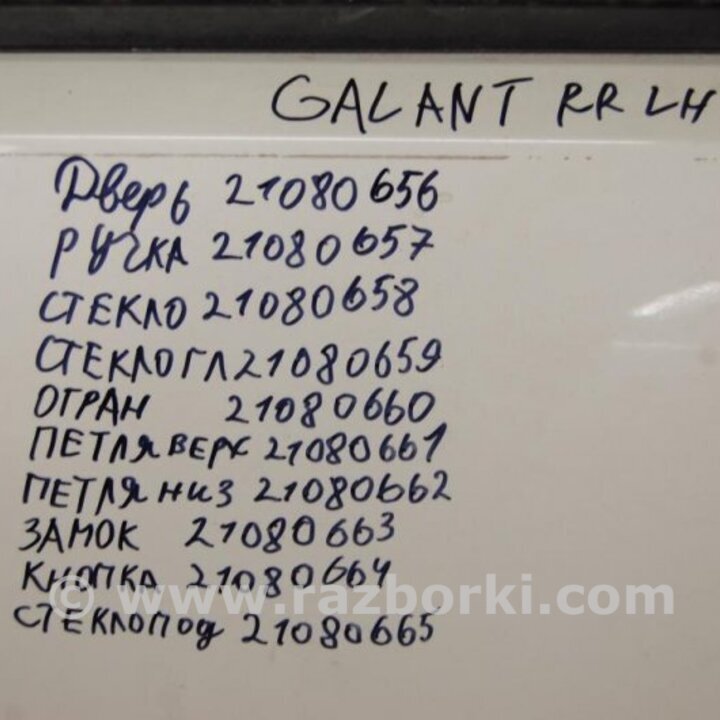 GALANT RR LH
Дверь 21080656
РУЧКА 21080657
СТЕКЛО 21080658
СТЕКЛО ГЛ 21080659
ОГРАН 21080660
ПЕТЛЯ ВЕРХ 21080661
ПЕТЛЯ НИЗ 21080662
ЗАМОК 21080663
КНОПКА 21080664
© www.razborki.com
СТЕКЛОПОД 21080665